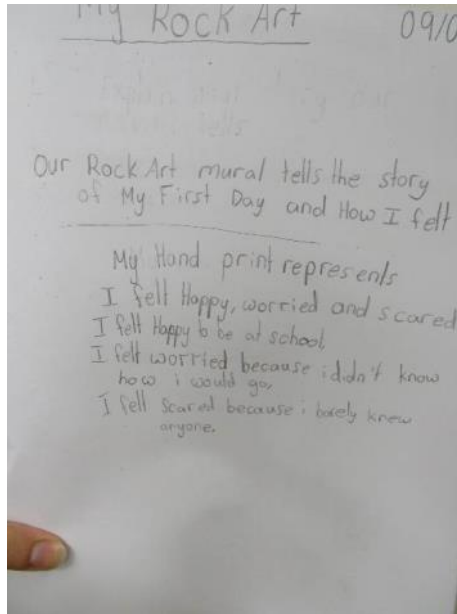 My Rock Art 09/0
Our Rock Art mural tells the story
of My First Day and How I felt
My Hand print represents
I felt Happy, worried and scared
I felt Happy to be at school,
I felt worried because i didn't know
how i would go,
I fell scared because i barely knew
anyone.